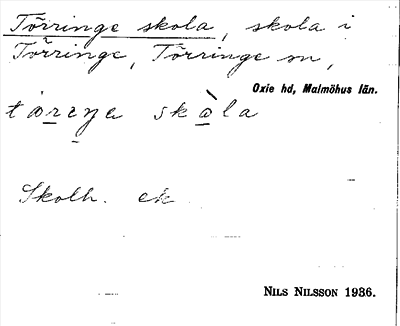 Törringe skola, skola i
Törringe, Törringe sn,
Oxie hd, Malmöhus län.
skòla
Skolh. ek
NILS NILSSON 1936.